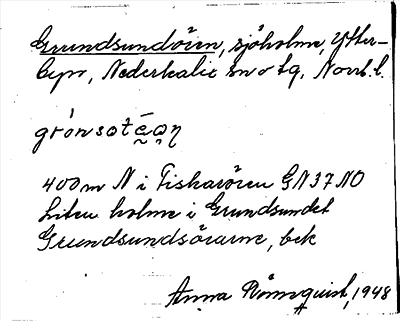 Grundsundören, sjöholme, Ytter-
byn, Nederkalix sn o tg, Norrb. l.
400 m N i Fiskarören GN 37 NO
Liten holme i Grundsundet
Grundsundsörarne, bek
Anna Rönnquist, 1948